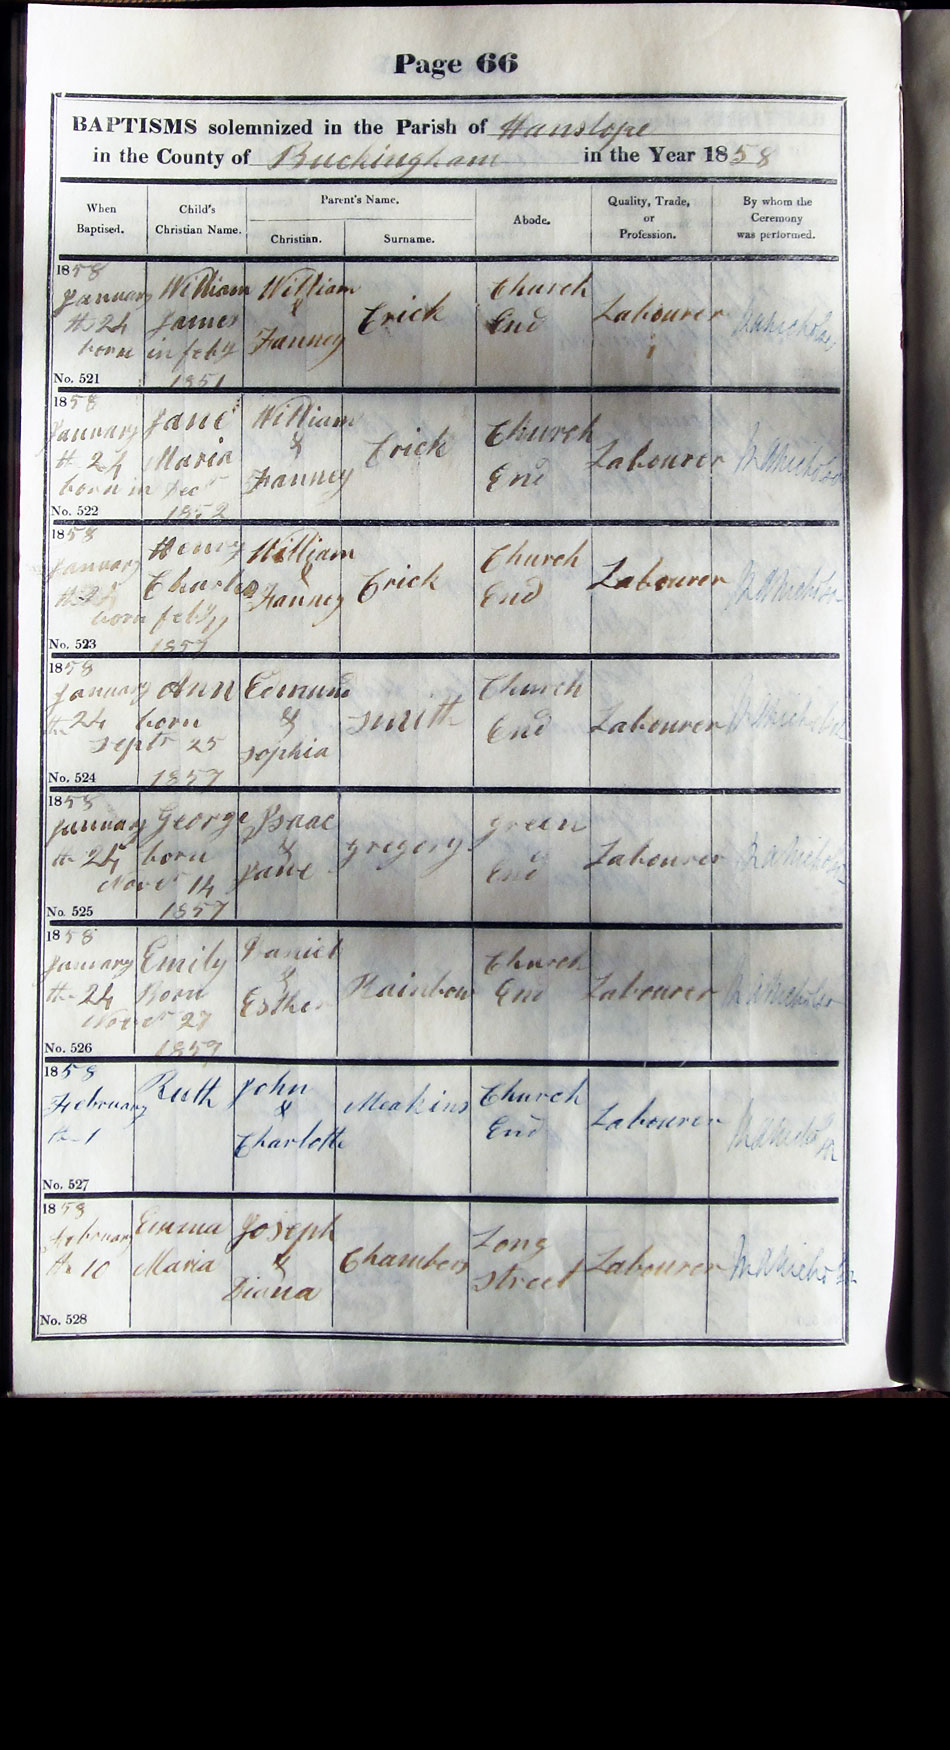 Page 66
BAPTISMS solemnized in the Parish of Hanslope
in the County of Buckingham in the Year 1858
When Baptised.
Child's Christian Name.
Parent's Name.
Christian.
Surname.
Abode.
Quality, Trade, or Profession.
By whom the Ceremony was performed.
1858
January William William Church
th 24 James & Erick End Labourer
born in feby Fanney
No. 521 1851
1858
January Jane William Church
th 24 Maria & Erick End Labourer
born in Decr Fanney
No. 522 1852
1858
January Henry William Church
th 24 Charles & Erick End Labourer
born feby Fanney
No. 523 1857
1858
January Ann Edmund Church
th 24 born & Smith End Labourer
Septr 25 Sophia
No. 524 1857
1858
January George Isaac green
th 24 born & gregory End Labourer
Novr 14 Jane
No. 525 1857
1858
January Emily Daniel Church
th 24 Born & Rainbow End Labourer
Novr 27 Esther
No. 526 1857
1858
February Ruth John Meakins Church
th 1 & End Labourer
Charlotte
No. 527
1858
February Emma Joseph Long
th 10 Maria & Chambers Street Labourer
Diana
No. 528